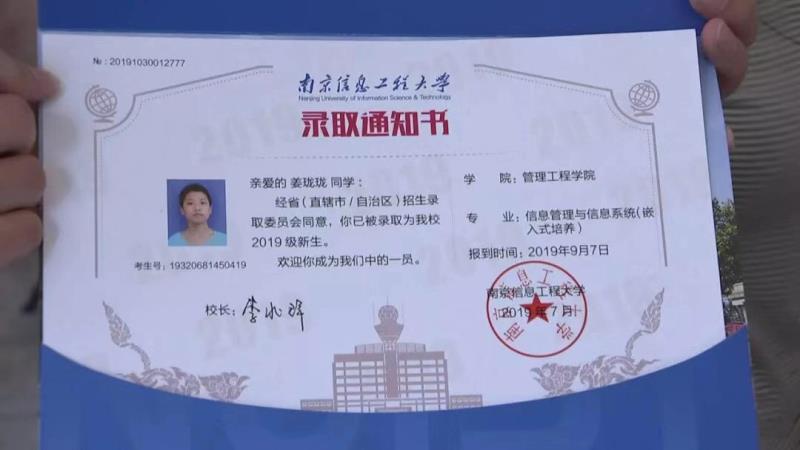 №:20191030012777
南京信息工程大学
Nanjing University of Information Science & Technology
录取通知书
亲爱的 姜珑珑 同学：
经省（直辖市/自治区）招生录
取委员会同意，你已被录取为我校
2019 级新生。
欢迎你成为我们中的一员。
考生号：19320681450419
校长：
学 院：管理工程学院
专 业：信息管理与信息系统(嵌
入式培养）
报到时间：2019年9月7日
南京信息工程大学
2019 年 7 月